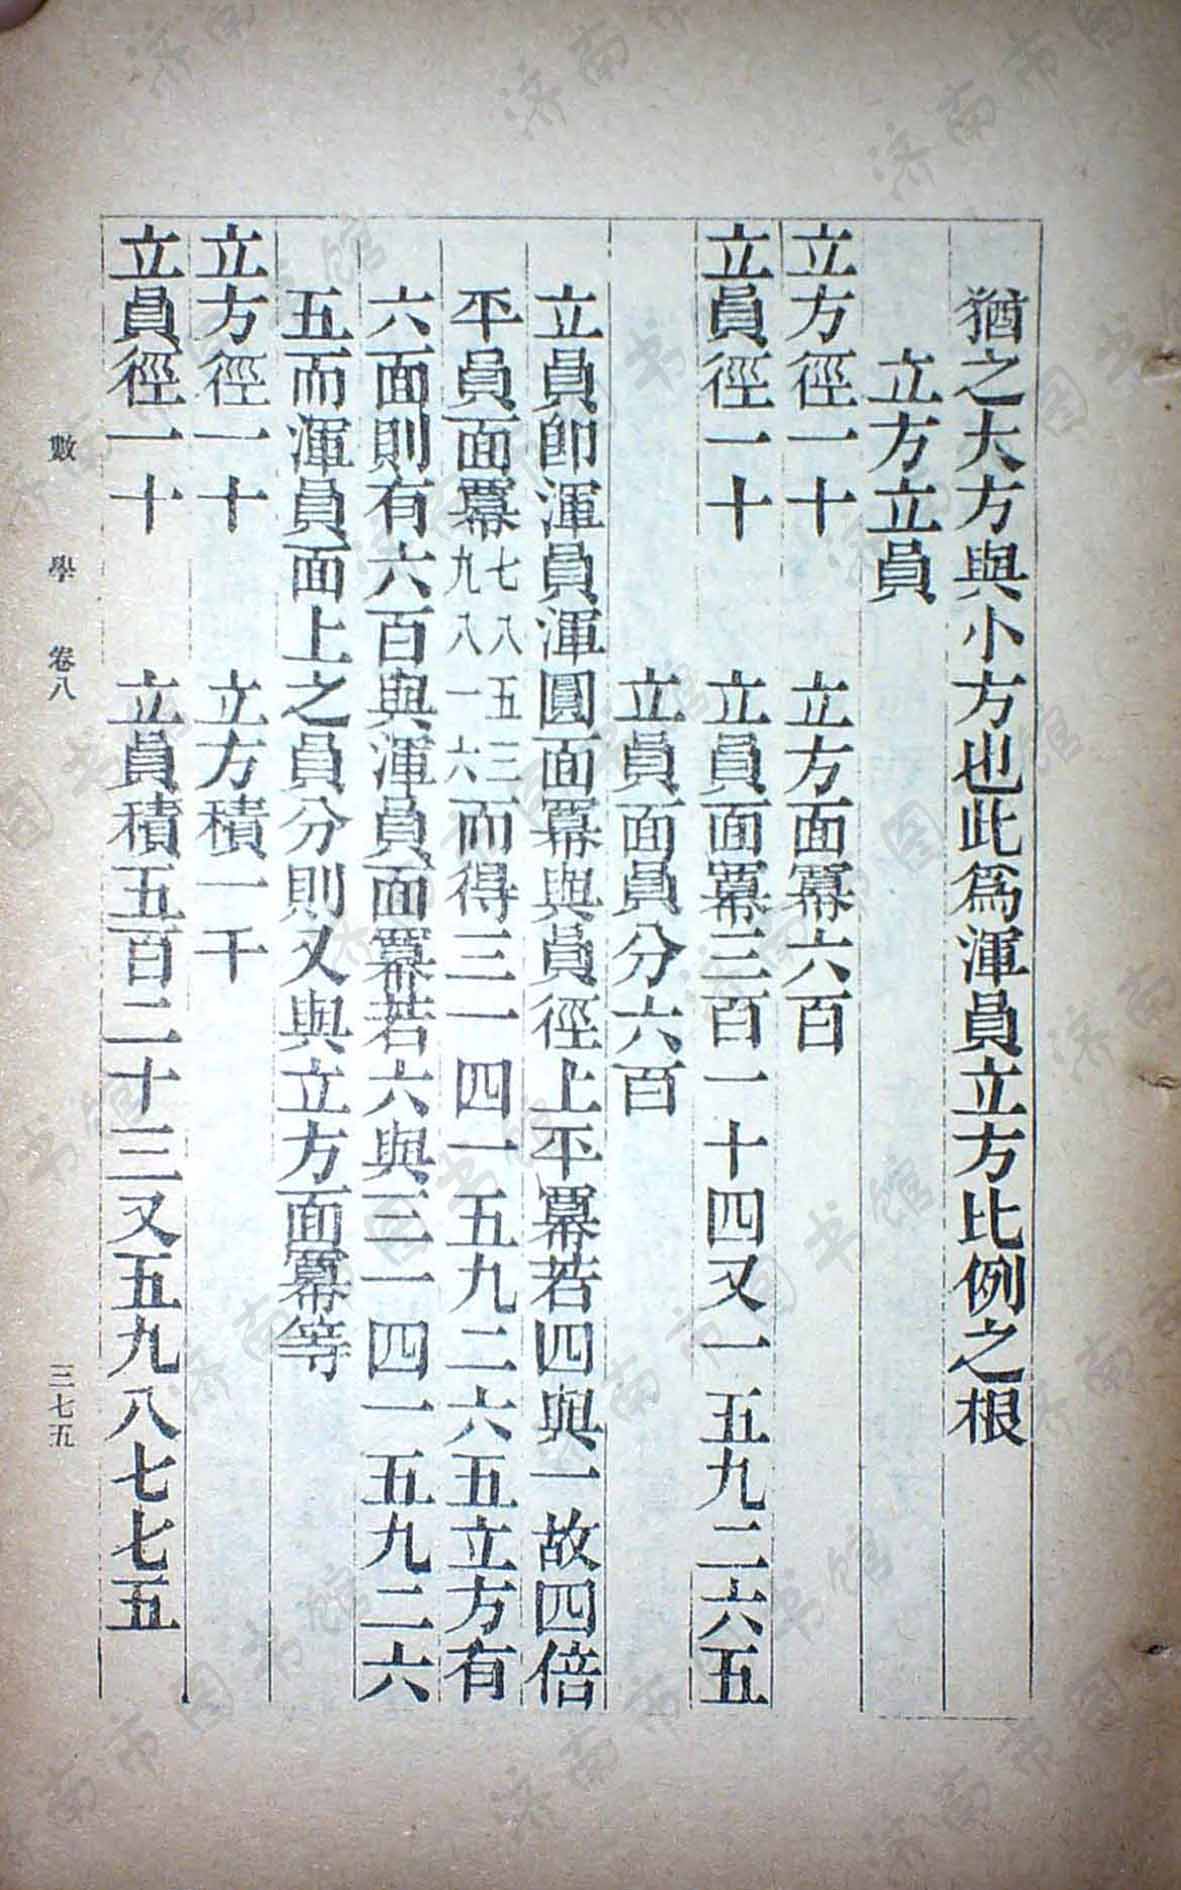 猶之大方與小方也此爲渾員立方比例之根
立方立員
立方徑一十　立方面冪六百
立員徑一十　立員面冪三百一十四又一五九二六五
立員面員分六百
立員卽渾員渾圓面冪與員徑上平冪若四與一故四倍
平員面冪七八五三九八一六而得三一四一五九二六五立方有
六面則有六百與渾員面冪若六與三一四一五九二六
五而渾員面上之員分則又與立方面冪等
立方徑一十　立方積一千
立員徑一十　立員積五百二十三又五九八七七五
數學　卷八　三七五
济南市图书馆